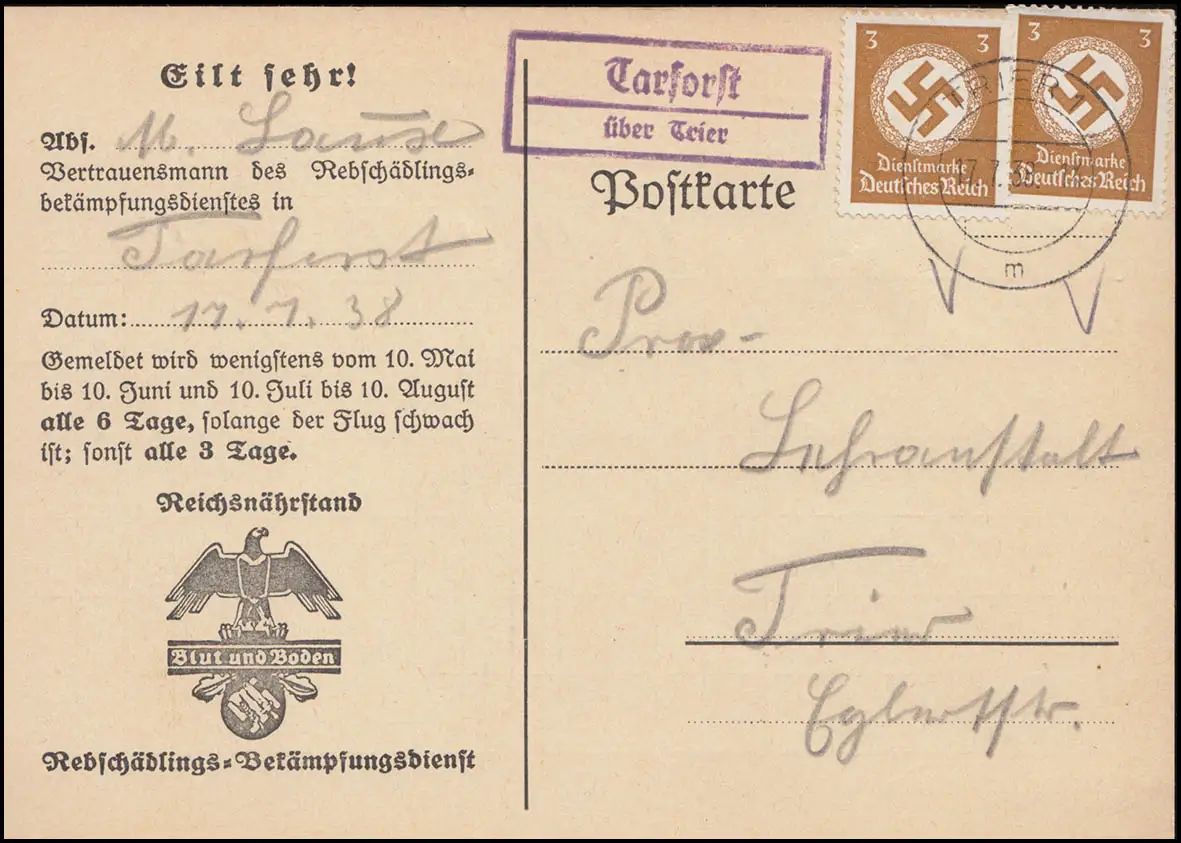 Eilt sehr!
Abs. M. Lause
Vertrauensmann des Rebschädlings-
bekämpfungsdienstes in
Tarforst
Datum: 17. 7. 38
Gemeldet wird wenigstens vom 10. Mai
bis 10. Juni und 10. Juli bis 10. August
alle 6 Tage, solange der Flug schwach
ist; sonst alle 3 Tage.
Reichsnährstand
Blut und Boden
Rebschädlings-Bekämpfungsdienst
Tarforst
über Trier
Postkarte
3 3
Dienstmarke
Deutsches Reich
3 3
Dienstmarke
Deutsches Reich
TRIER
17.7.38
m
Prov-
Lehranstalt
Trier